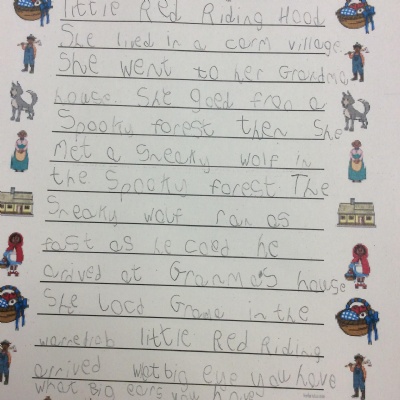 little Red Riding Hood
She lied in a carm village.
She went to her Grandma
house. She goed fron a
Spooky forest then She
met a Sneaky wolf in
the Spooky forest. The
Sneaky wolf ran as
fast as he coed he
arrived at Granma's house
She locd Grama in the
little Red Riding
arrived wot big eye you have
what Big ears you have